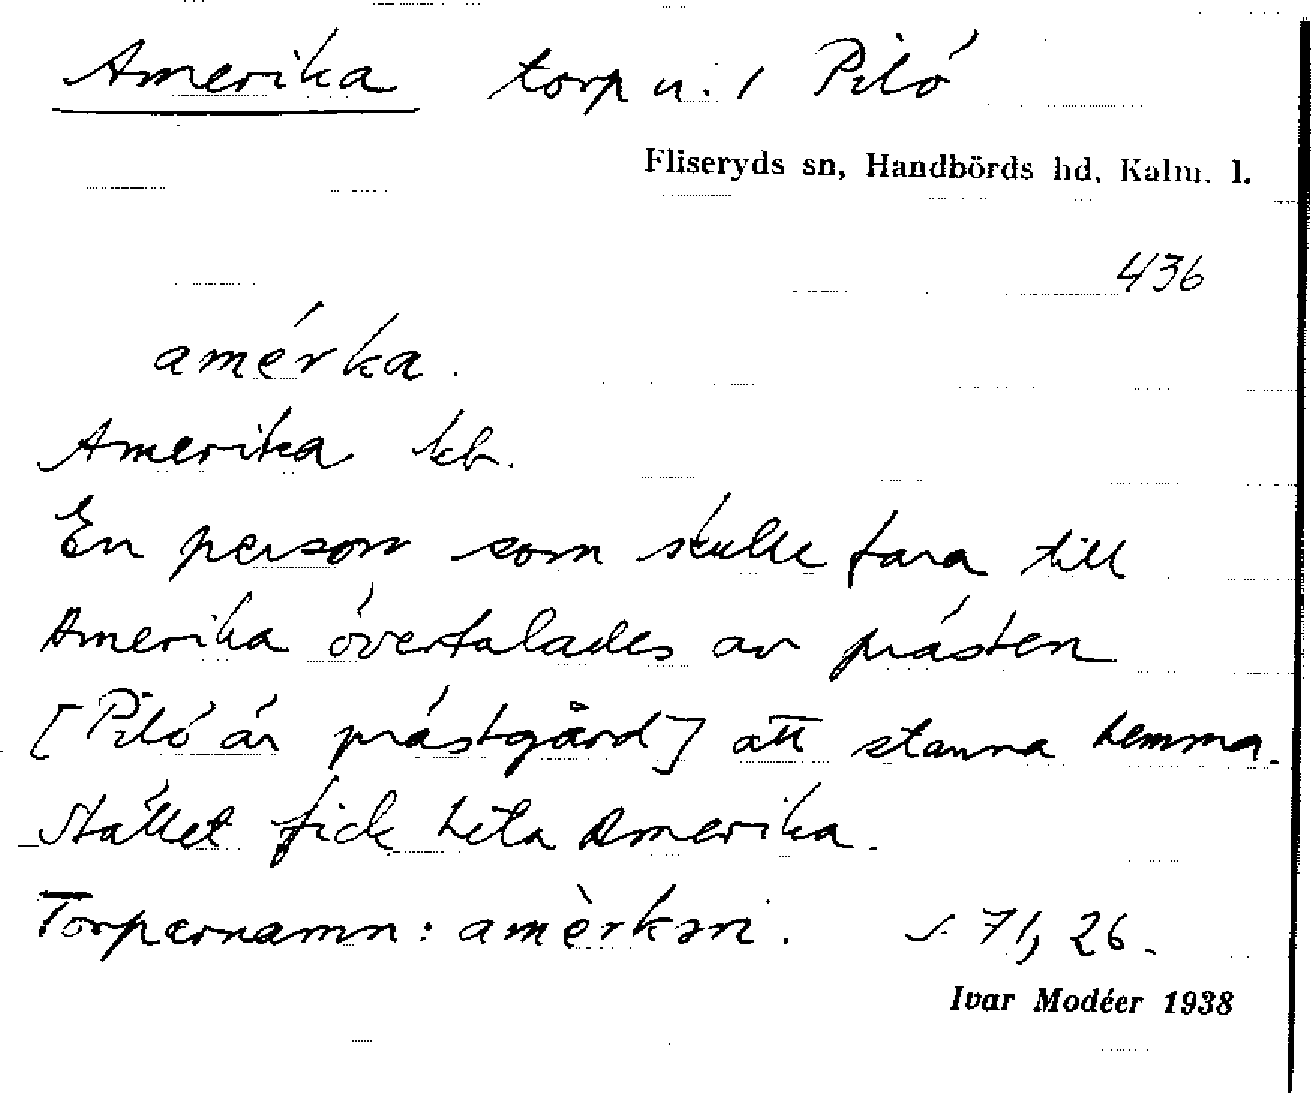 Amerika torp u. 1 Pilö
Fliseryds sn, Handbörds hd, Kalm. l.
436
amérka.
Amerika kb.
En person som skulle fara till
Amerika övertalades av prästen
[Pilö är prästgård] att stanna hemma.
Stället fick heta Amerika.
Torparnamn: amèrksn. s. 71, 26.
Ivar Modéer 1938